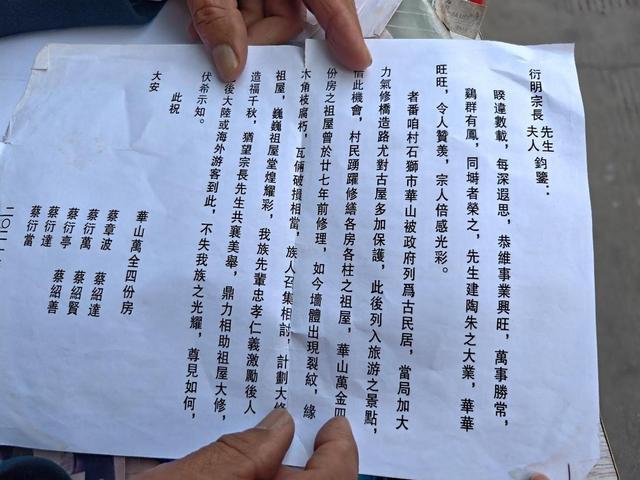 衍明宗長 先生 夫人 鈞鑒：
睽違數載，每深遐思，恭維事業興旺，萬事勝常，
鷄群有鳳，同塒者榮之，先生建陶朱之大業，華華
旺旺，令人贊羨，宗人倍感光彩。
者番咱村石獅市華山被政府列爲古民居，當局加大
力氣修橋造路尤對古屋多加保護，此後列入旅游之景點，
借此機會，村民踴躍修繕各房各柱之祖屋，華山萬金四
份房之祖屋曾於廿七年前修理，如今墻體出現裂紋，緣
木角枝腐朽，瓦俩破損相當，族人召集相討，計劃大修
祖屋，巍巍祖屋堂煌耀彩，我族先輩忠孝仁義激勵後人
造福千秋，猶望宗長先生共襄美舉，鼎力相助祖屋大修，
後大陸或海外游客到此，不失我族之光耀，尊見如何，
伏希示知。
此祝
大安
華山萬全四份房
蔡章波 蔡紹達
蔡衍萬 蔡紹賢
蔡衍亭 蔡紹善
蔡衍達
蔡衍當
二〇一